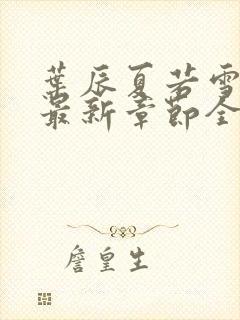 葉辰夏若雪
最新章節全
詹皇生